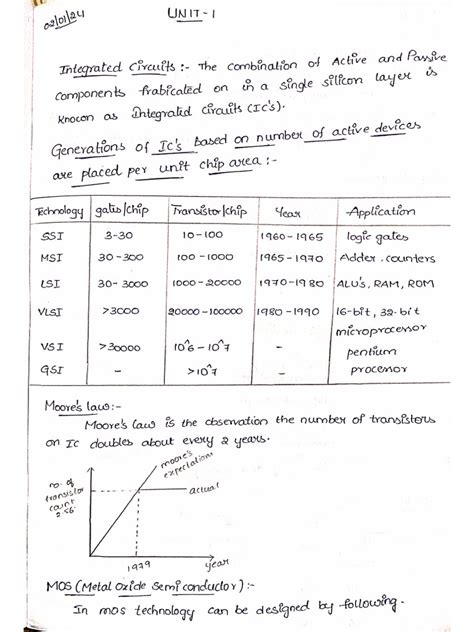 02/01/24
UNIT-1
Integrated Circuits :- The combination of Active and Passive
components frabicated on in a single silicon layer is
known as Integrated circuits (Ic's).
Generations of Ic's based on number of active devices
are placed per unit chip area :-
Technology gates/chip Transistor/chip Year Application
SSI 3-30 10-100 1960-1965 logic gates
MSI 30-300 100-1000 1965-1970 Adder, counters
LSI 30-3000 1000-20000 1970-1980 ALU's, RAM, ROM
VLSI >3000 20000-100000 1980-1990 16-bit, 32-bit
microprocessor
VSI >30000 10^6-10^7 - pentium
GSI - >10^7 procenor
Moore's law:-
Moore's law is the observation the number of transistors
on Ic doubles about every 2 years.
moore's
expectations
no. of
transistor
count
2.56
actual
1979
year
MOS (Metal Oxide Semiconductor):-
In mos technology can be designed by following.